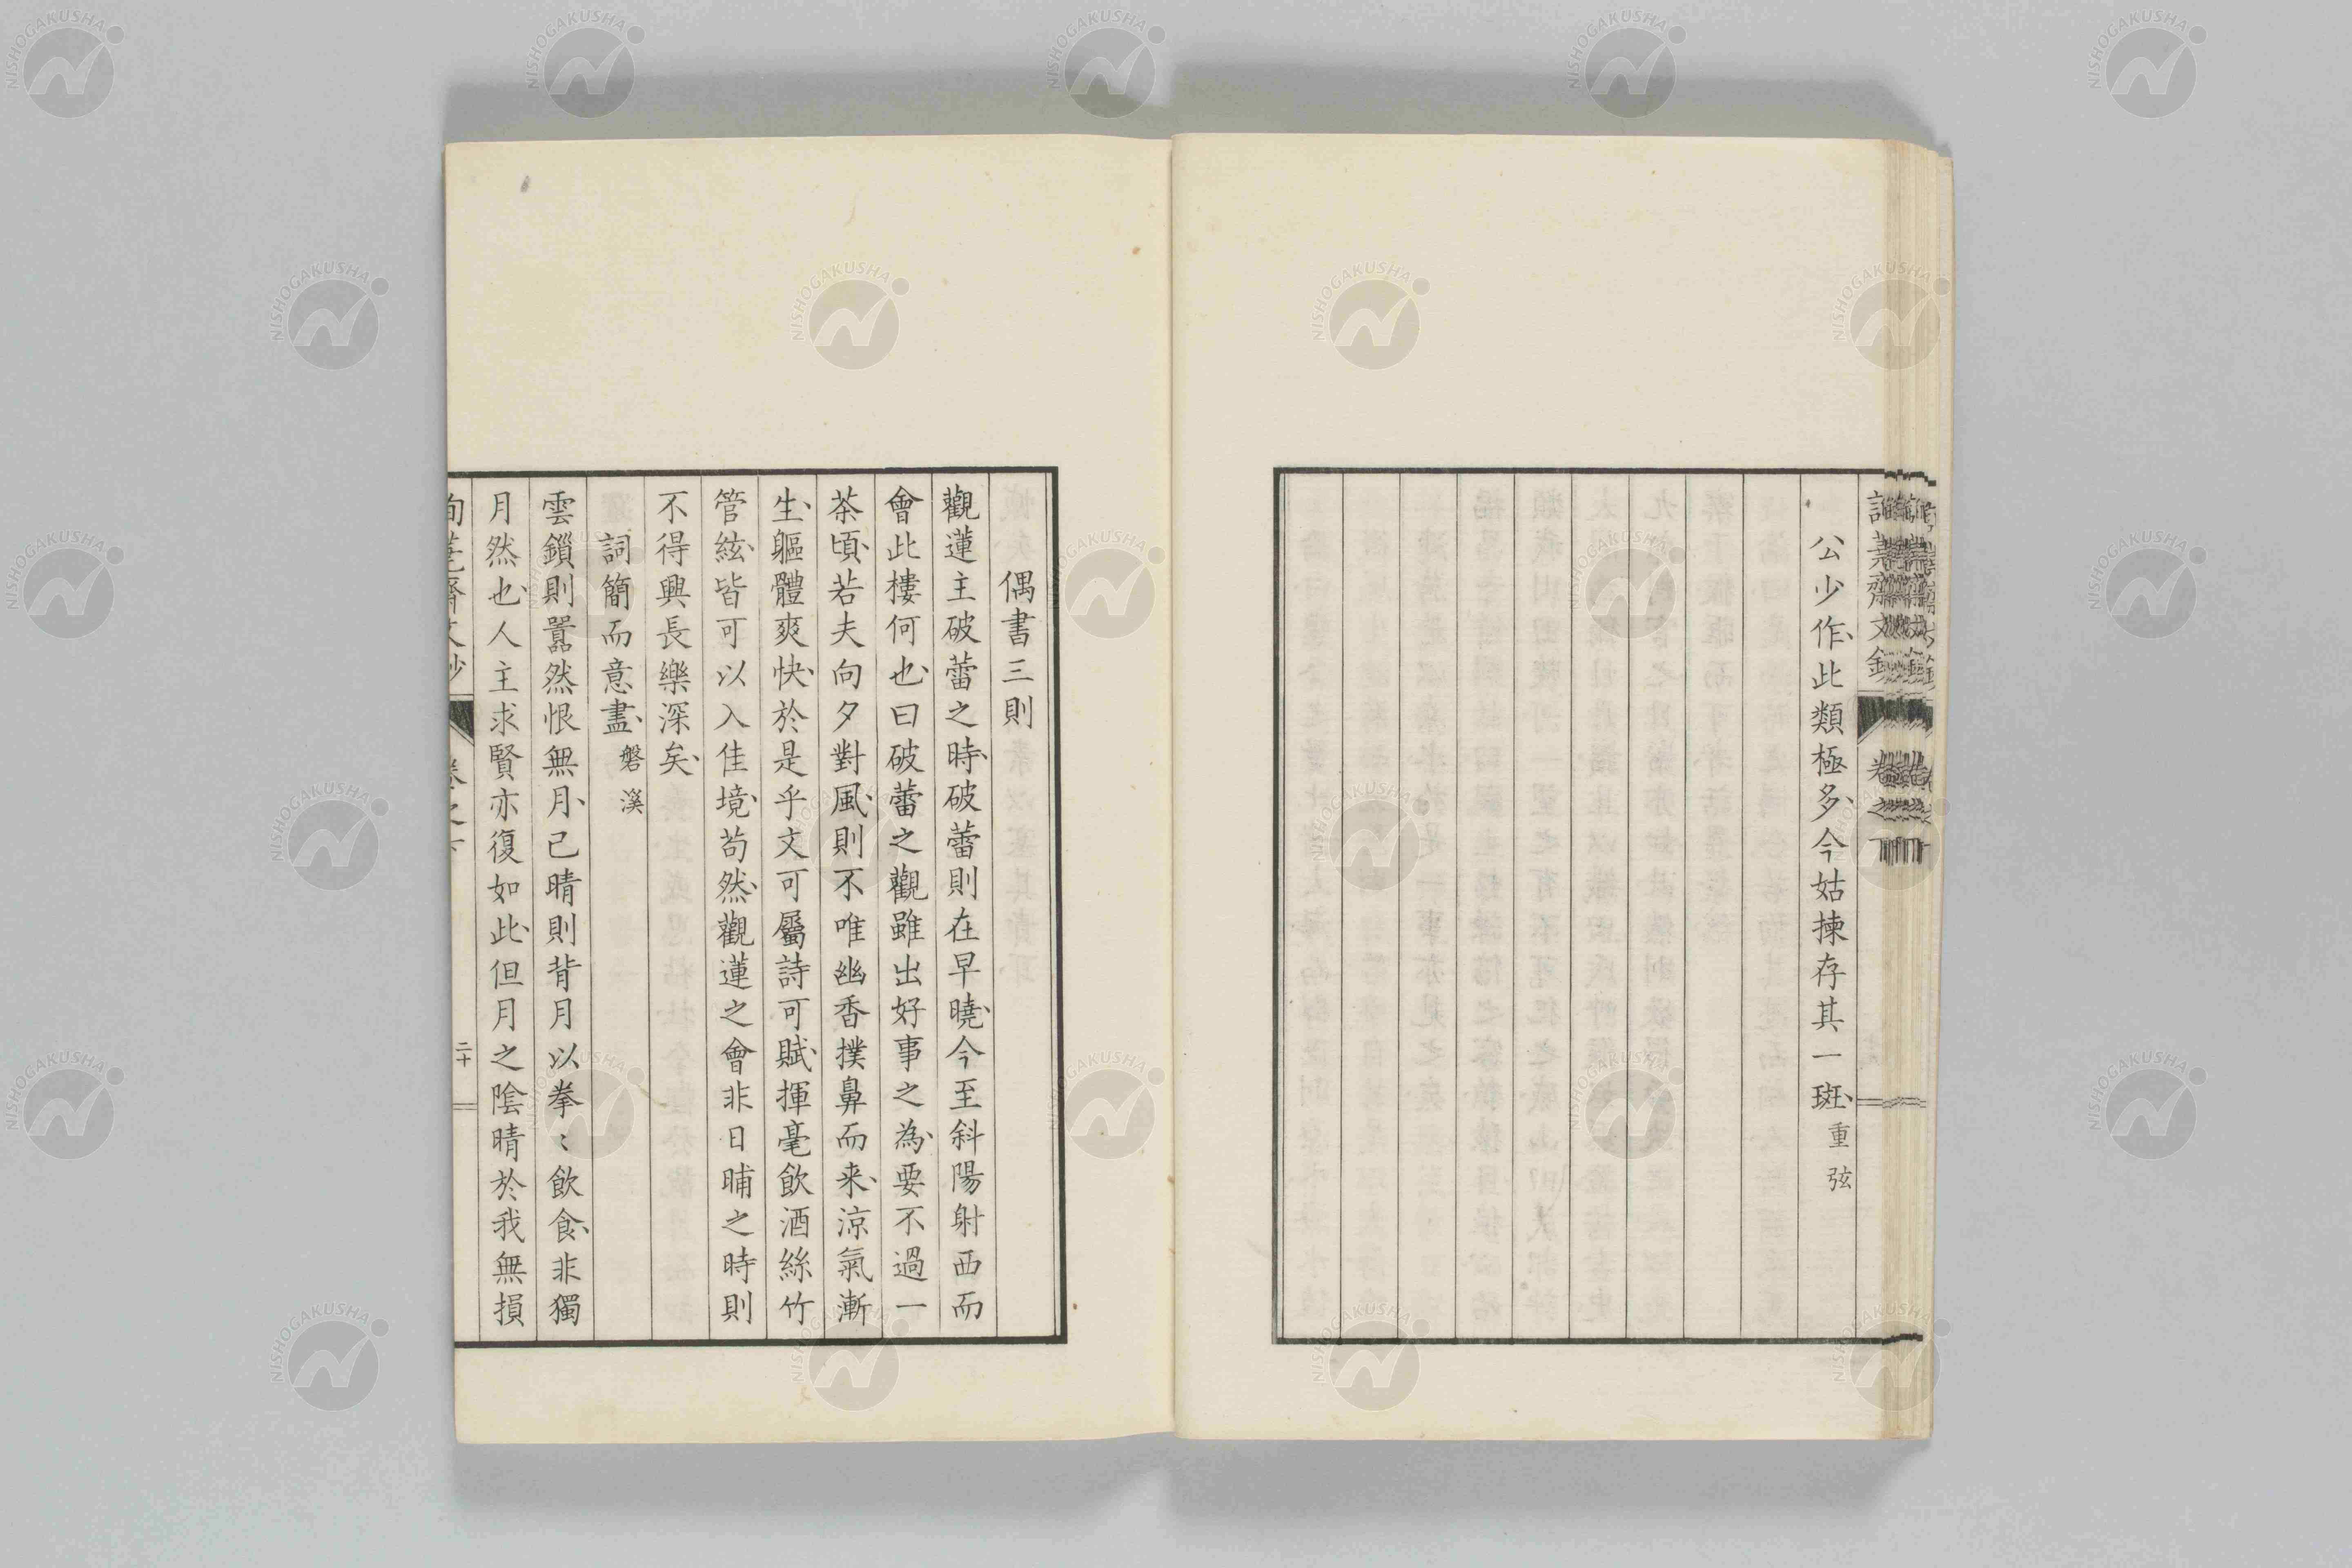 公少作、此類極多、今姑揀存其一斑、重弦
偶書三則
觀蓮主破蕾之時、破蕾則在早曉、今至斜陽射西而
會此樓何也、曰破蕾之觀雖出好事之為、要不過一
茶頃、若夫向夕對風、則不唯幽香撲鼻而来、涼氣漸
生、軀體爽快、於是乎文可屬詩可賦、揮毫飲酒絲竹
管絃、皆可以入佳境、苟然、觀蓮之會非日晡之時則
不得興長樂深矣、
詞簡而意盡、磐溪
雲鎖則囂然恨無月、已晴則背月以拳〻飲食、非獨
月然也、人主求賢亦復如此、但月之陰晴於我無損
卷之下
二十
NISHOGAKUSHA